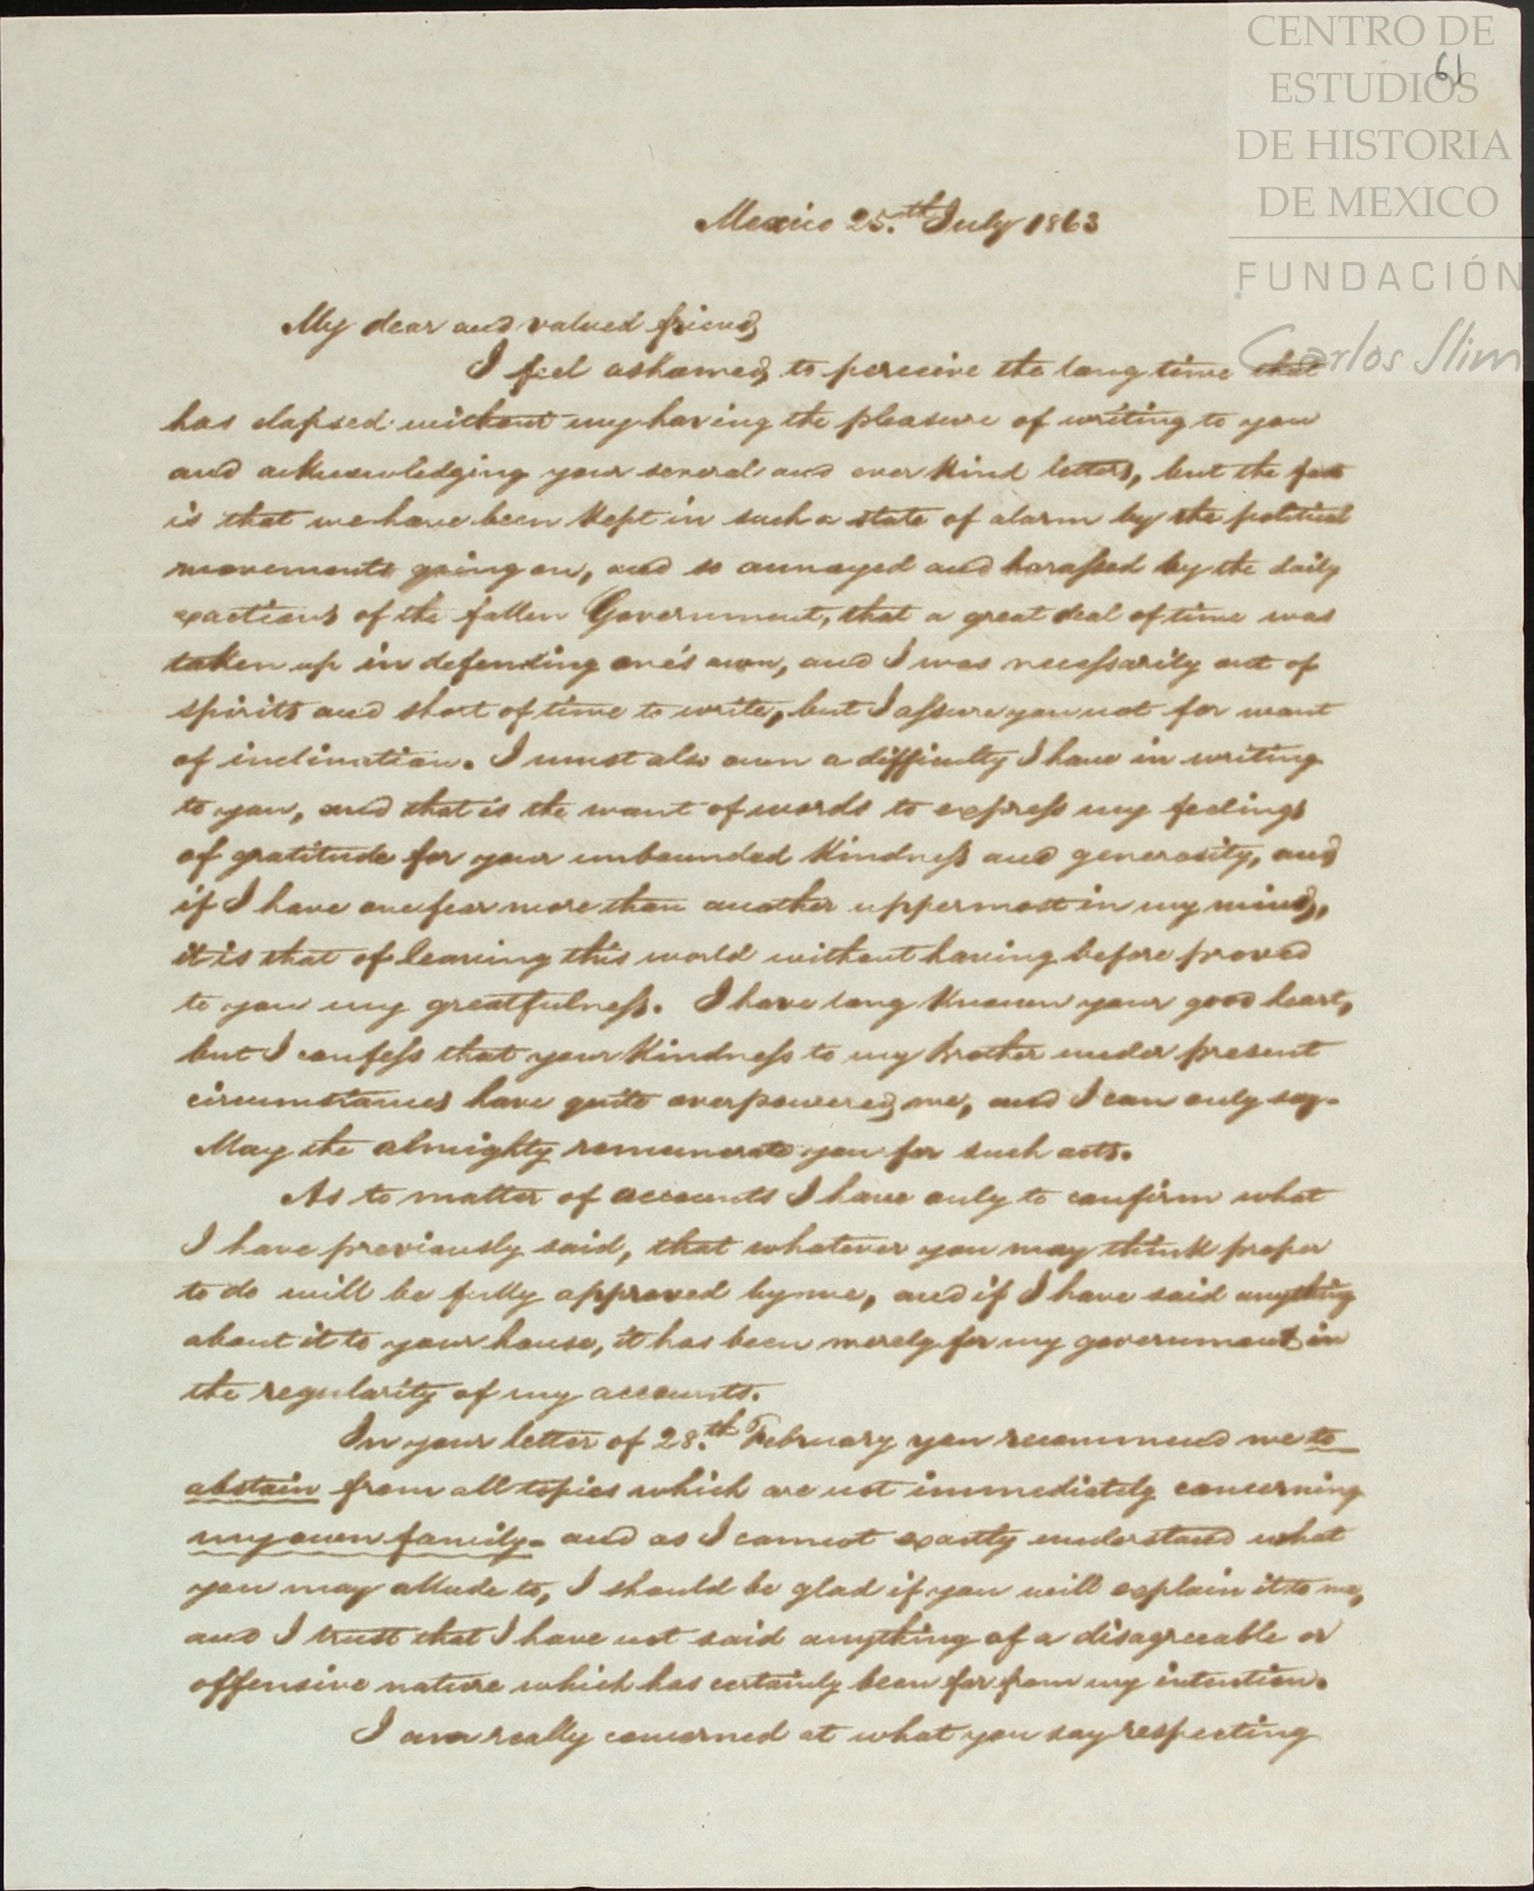 CENTRO DE
ESTUDIOS
DE HISTORIA
DE MEXICO
FUNDACIÓN
Carlos Slim
61
Mexico 25.th July 1863
My dear and valued friend,
I feel ashamed, to perceive the long time that
has elapsed without my having the pleasure of writing to you
and acknowledging your several and ever kind letters, but the fact
is that we have been kept in such a state of alarm by the political
movements going on, and so annoyed and harassed by the daily
exactions of the fallen Government, that a great deal of time was
taken up in defending one's own, and I was necessarily out of
spirits and short of time to write, but I assure you not for want
of inclination. I must also own a difficulty I have in writing
to you, and that is the want of words to express my feelings
of gratitude for your unbounded kindness and generosity, and
if I have one fear more than another uppermost in my mind,
it is that of leaving this world without having before proved
to you my greatfulness. I have long known your good heart,
but I confess that your kindness to my brother under present
circumstances have quite overpowered me, and I can only say-
May the almighty remunerate you for such acts.
As to matter of accounts I have only to confirm what
I have previously said, that whatever you may think proper
to do will be fully approved by me, and if I have said anything
about it to your house, it has been merely for my government in
the regularity of my accounts.
In your letter of 28.th February you recommend me to
abstain from all topics which are not immediately concerning
my own family- and as I cannot exactly understand what
you may allude to, I should be glad if you will explain it to me,
and I trust that I have not said anything of a disagreeable or
offensive nature which has certainly been far from my intention.
I am really concerned at what you say respecting